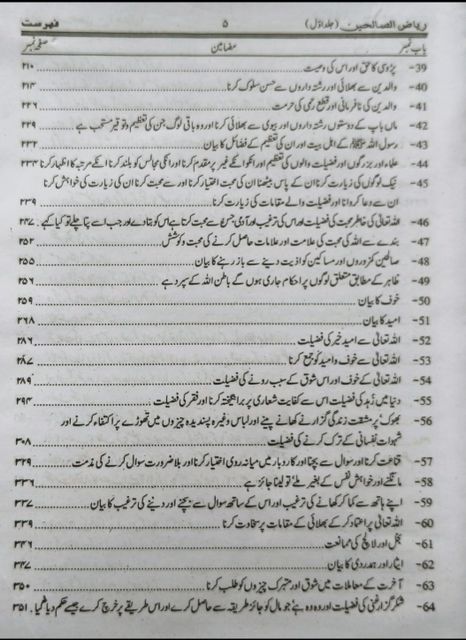 ریاض الصالحین (جلد اوّل) ۵ فہرست
باب نمبر مضامین صفحہ نمبر
39- پڑوسی کا حق اور اس کی وصیت ۲۱۰
40- والدین سے بھلائی اور رشتہ داروں سے حسن سلوک کرنا ۲۱۴
41- والدین کی نافرمانی اور قطع رحمی کی حرمت ۲۲۶
42- ماں باپ کے دوستوں رشتہ داروں اور بیوی سے بھلائی کرنا اور وہ باقی لوگ جن کی تعظیم و توقیر مستحب ہے ۲۲۹
43- رسول اللہ ﷺ کے اہل بیت اور ان کی تعظیم کے فضائل کا بیان ۲۳۲
44- علماء اور بزرگوں اور فضیلت والوں کی تعظیم اور انکو انکے غیر پر مقدم کرنا اور انکی مجالس کو بلند کرنا انکے مرتبہ کا اظہار کرنا ۲۳۴
45- نیک لوگوں کی زیارت کرنا ان کے پاس بیٹھنا ان کی محبت اختیار کرنا اور سے محبت کرنا ان کی زیارت کی خواہش کرنا
ان سے دعا کروانا اور فضیلت والے مقامات کی زیارت کرنا ۲۳۹
46- اللہ تعالیٰ کی خاطر محبت کی فضیلت اور اس کی ترغیب اور آدمی جس سے محبت کرتا ہے اس کو بتا دے اور جب اسے بتا چکے تو کیا کہے ۲۴۷
47- بندے سے اللہ کی محبت کی علامت اور علامات حاصل کرنے کی محبت و کوشش ۲۵۲
48- صالحین کمزوروں اور مساکین کو اذیت دینے سے باز رہنے کا بیان ۲۵۵
49- ظاہر کے مطابق متعلق لوگوں پر احکام جاری ہوں گے باطن اللہ کے سپرد ہے ۲۵۶
50- خوف کا بیان ۲۵۹
51- امید کا بیان ۲۶۸
52- اللہ تعالیٰ سے امید خیر کی فضیلت ۲۸۶
53- اللہ تعالیٰ سے خوف و امید کو جمع کرنا ۲۸۷
54- اللہ تعالیٰ کے خوف اور اس شوق کے سبب رونے کی فضیلت ۲۸۹
55- دنیا میں زہد کی فضیلت اس سے کفایت شعاری پر برانگیختہ کرنا اور فقر کی فضیلت ۲۹۳
56- بھوک پر مشقت زندگی گزارنے کھانے پینے اور لباس وغیرہ پسندیدہ چیزوں میں تھوڑے پر اکتفاء کرنے اور
شہوات نفسانی کے ترک کرنے کی فضیلت ۳۰۸
57- قناعت کرنا اور سوال سے بچنا اور کاروبار میں میانہ روی اختیار کرنا اور بلا ضرورت سوال کرنے کی مذمت ۳۲۹
58- مانگنے اور خواہش نفس کے بغیر ملے تو لینا جائز ہے ۳۳۶
59- اپنے ہاتھ سے کما کر کھانے کی ترغیب اور اس کے ساتھ سوال سے بچنے اور دینے کی ترغیب کا بیان ۳۳۷
60- اللہ تعالیٰ پر اعتماد کر کے بھلائی کے مقامات پر سخاوت کرنا ۳۳۹
61- بخل اور لالچ کی ممانعت ۳۴۶
62- ایثار اور ہمدردی کا بیان ۳۴۷
63- آخرت کے معاملات میں شوق اور متبرک چیزوں کو طلب کرنا ۳۵۰
64- شکر گزار غنی کی فضیلت اور وہ وہ ہے جو مال کو جائز طریقہ سے حاصل کرے اور اس طریقے پر خرچ کرے جیسے حکم دیا گیا ۳۵۱